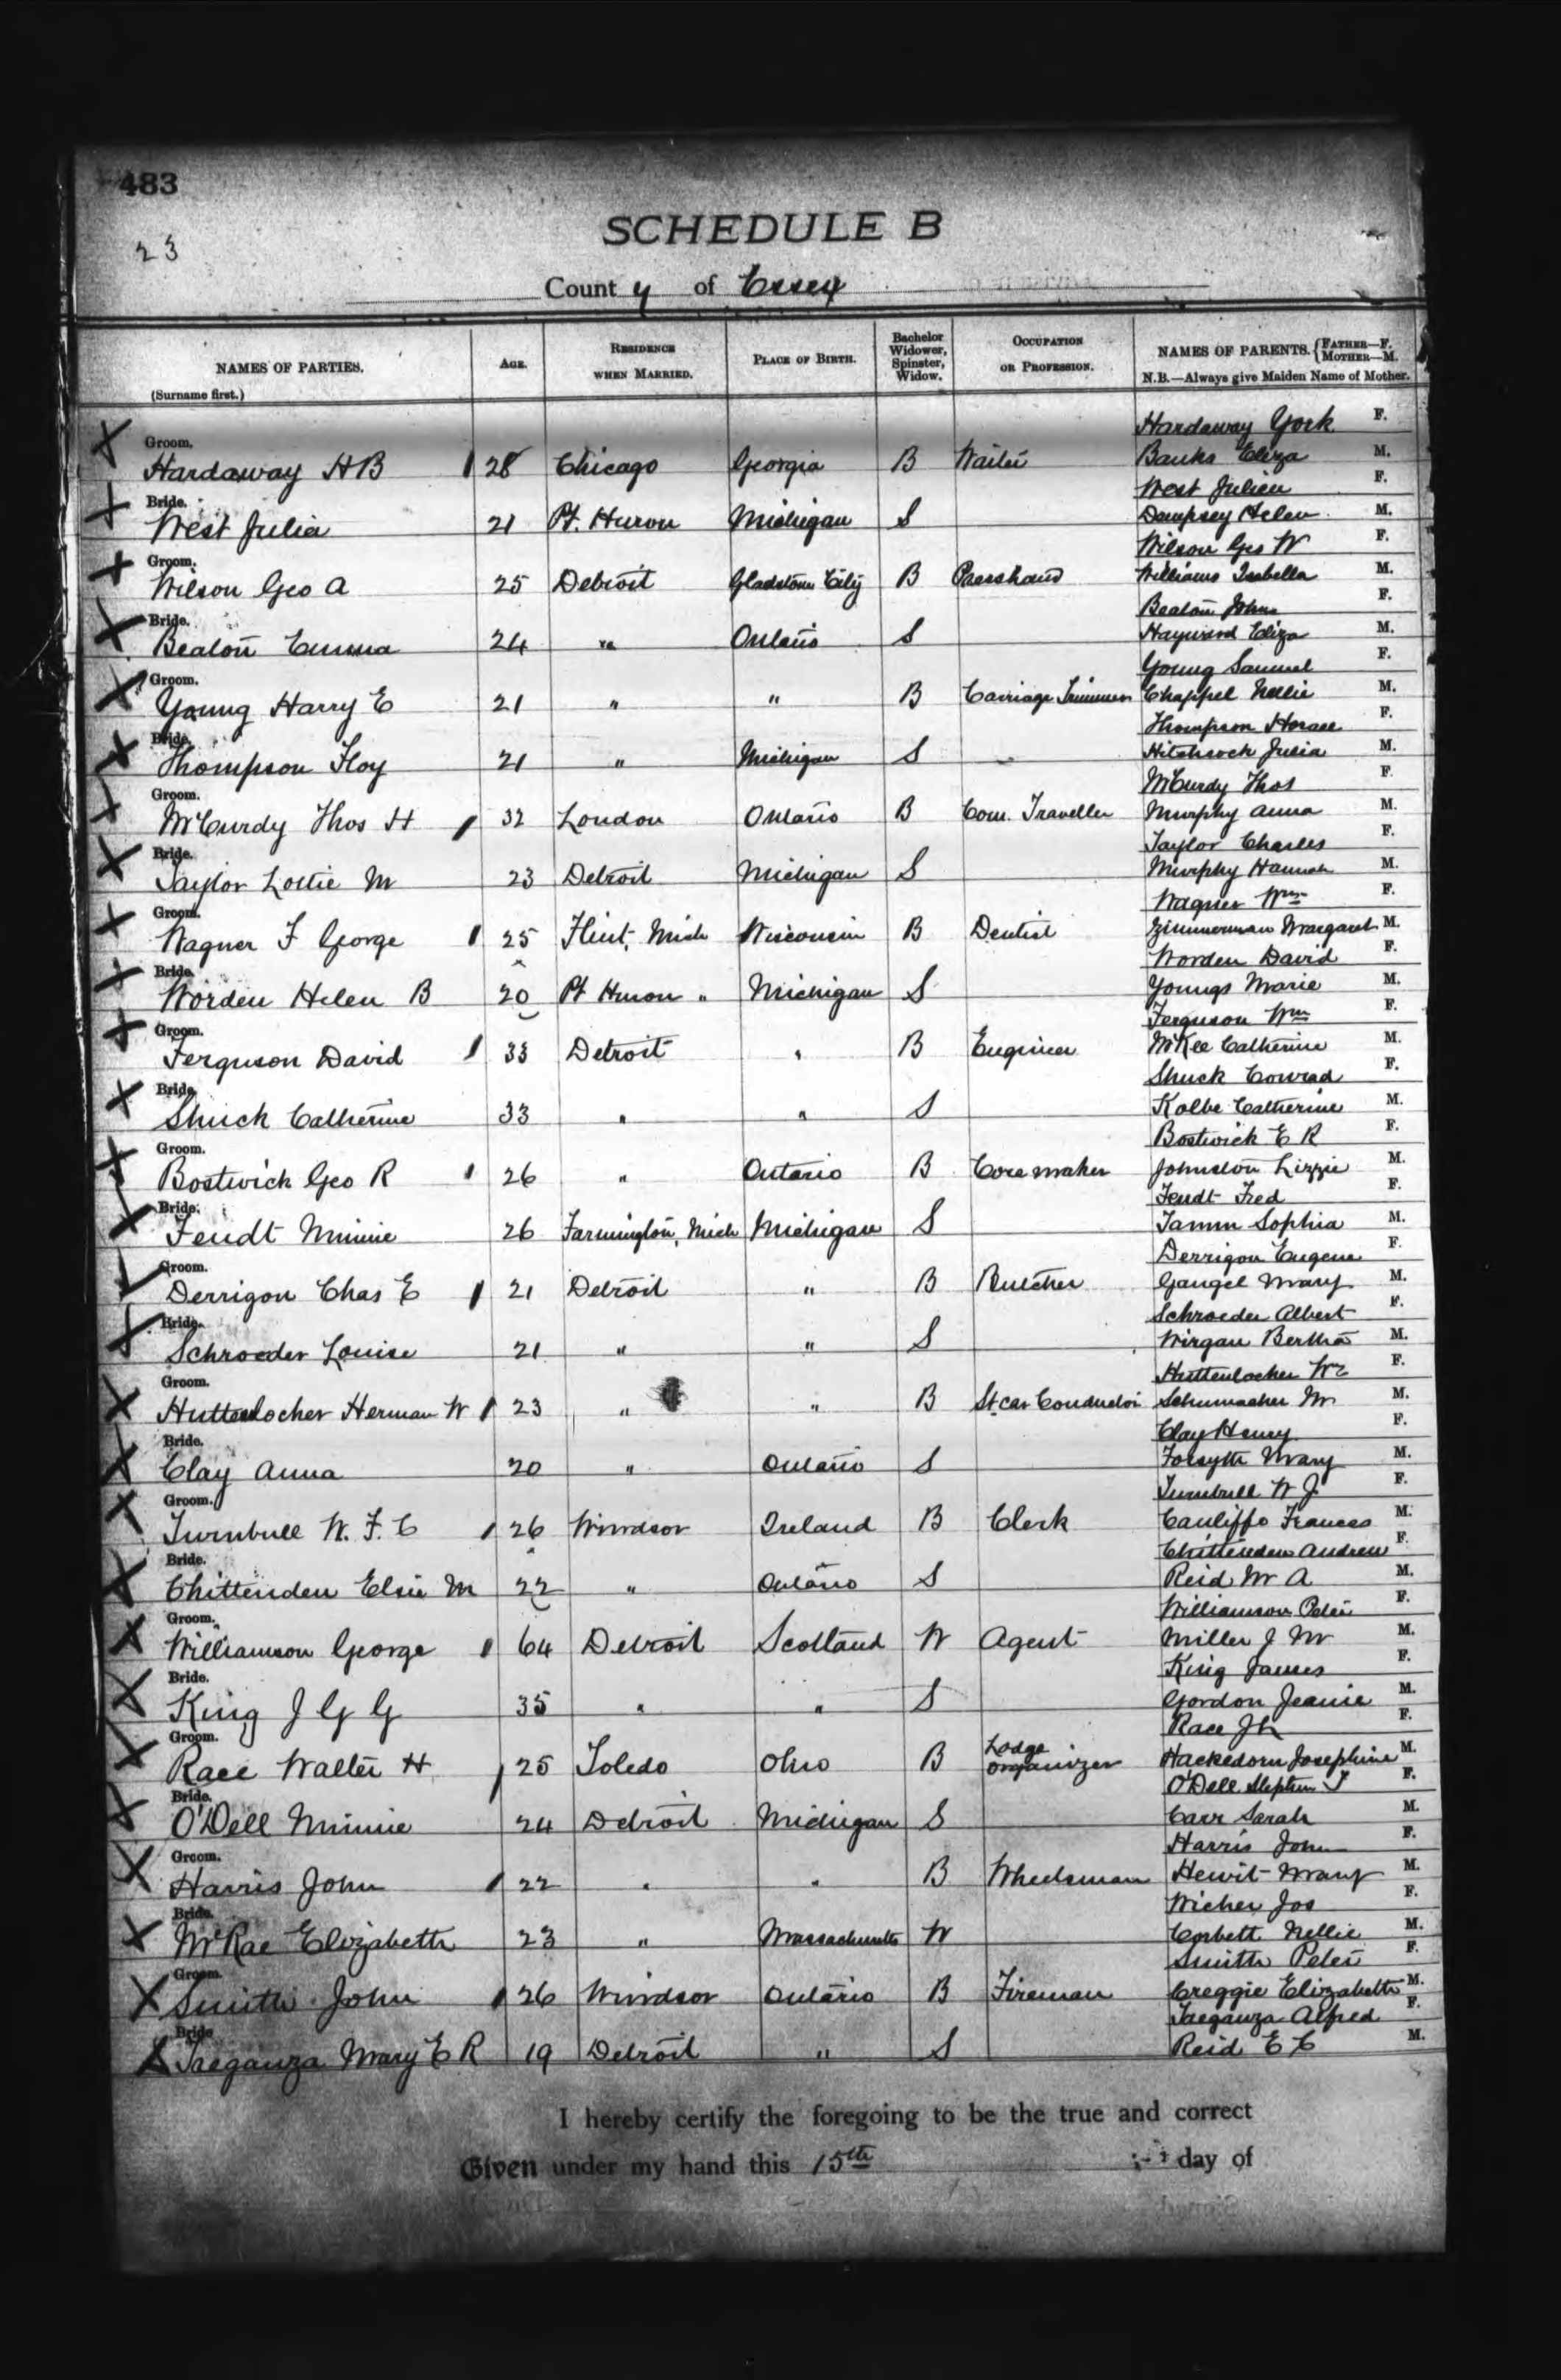 483
23
SCHEDULE B
County of Essex
NAMES OF PARTIES. (Surname first.) AGE. RESIDENCE WHEN MARRIED. PLACE OF BIRTH. Bachelor Widower, Spinster, Widow. OCCUPATION OR PROFESSION. NAMES OF PARENTS. {FATHER—F. MOTHER—M. N.B.—Always give Maiden Name of Mother.
Hardaway York F.
Groom. Hardaway H B 28 Chicago Georgia B Waiter Banks Eliza M.
West Julien F.
Bride. West Julia 21 Pt. Huron Michigan S Dempsey Helen M.
Wilson Geo W F.
Groom. Wilson Geo A 25 Detroit Gladstone City B Presshand Williams Isabella M.
Beaton John F.
Bride. Beaton Emma 24 " Ontario S Hayward Eliza M.
Young Samuel F.
Groom. Young Harry E 21 " " B Carriage Trimmer Chappel Nellie M.
Thompson Horace F.
Bride. Thompson Floy 21 " Michigan S Hitchcock Julia M.
McCurdy Thos F.
Groom. McCurdy Thos H 32 London Ontario B Com. Traveller Murphy Anna M.
Taylor Charles F.
Bride. Taylor Lottie M 23 Detroit Michigan S Murphy Hannah M.
Wagner Wm F.
Groom. Wagner F George 25 Flint, Mich Wisconsin B Dentist Zimmerman Margaret M.
Worden David F.
Bride. Worden Helen B 20 Pt Huron " Michigan S Youngs Marie M.
Ferguson Wm F.
Groom. Ferguson David 33 Detroit " B Engineer McKee Catherine M.
Shuck Conrad F.
Bride. Shuck Catherine 33 " " S Kolbe Catherine M.
Bostwick E R F.
Groom. Bostwick Geo R 26 " Ontario B Core maker Johnston Lizzie M.
Fendt Fred F.
Bride. Fendt Minnie 26 Farmington, Mich Michigan S Tamm Sophia M.
Derrigon Eugene F.
Groom. Derrigon Chas E 21 Detroit " B Butcher Gangel Mary M.
Schroeder Albert F.
Bride. Schroeder Louise 21 " " S Wirgau Bertha M.
Huttenlocher Wm F.
Groom. Huttenlocher Herman W 23 " " B St car Conductor Schumacher M M.
Clay Henry F.
Bride. Clay Anna 20 " Ontario S Forsyth Mary M.
Turnbull W J F.
Groom. Turnbull W. F. C 26 Windsor Ireland B Clerk Cauliffe Frances M.
Chittenden Andrew F.
Bride. Chittenden Elsie M 22 " Ontario S Reid M A M.
Williamson Peter F.
Groom. Williamson George 64 Detroit Scotland W Agent Miller J M M.
King James F.
Bride. King J G G 35 " " S Gordon Jeanie M.
Race J F.
Groom. Race Walter H 25 Toledo Ohio B Lodge organizer Hackedorn Josephine M.
O'Dell Stephen F.
Bride. O'Dell Minnie 24 Detroit Michigan S Carr Sarah M.
Harris John F.
Groom. Harris John 22 " " B Wheelsman Hewit Mary M.
Wicher Jos F.
Bride. McRae Elizabeth 23 " Massachusetts W Corbett Nellie M.
Smith Peter F.
Groom. Smith John 26 Windsor Ontario B Fireman Creggie Elizabeth M.
Taeganza Alfred F.
Bride Taeganza Mary E R 19 Detroit " S Reid E C M.
I hereby certify the foregoing to be the true and correct
Given under my hand this 15th day of